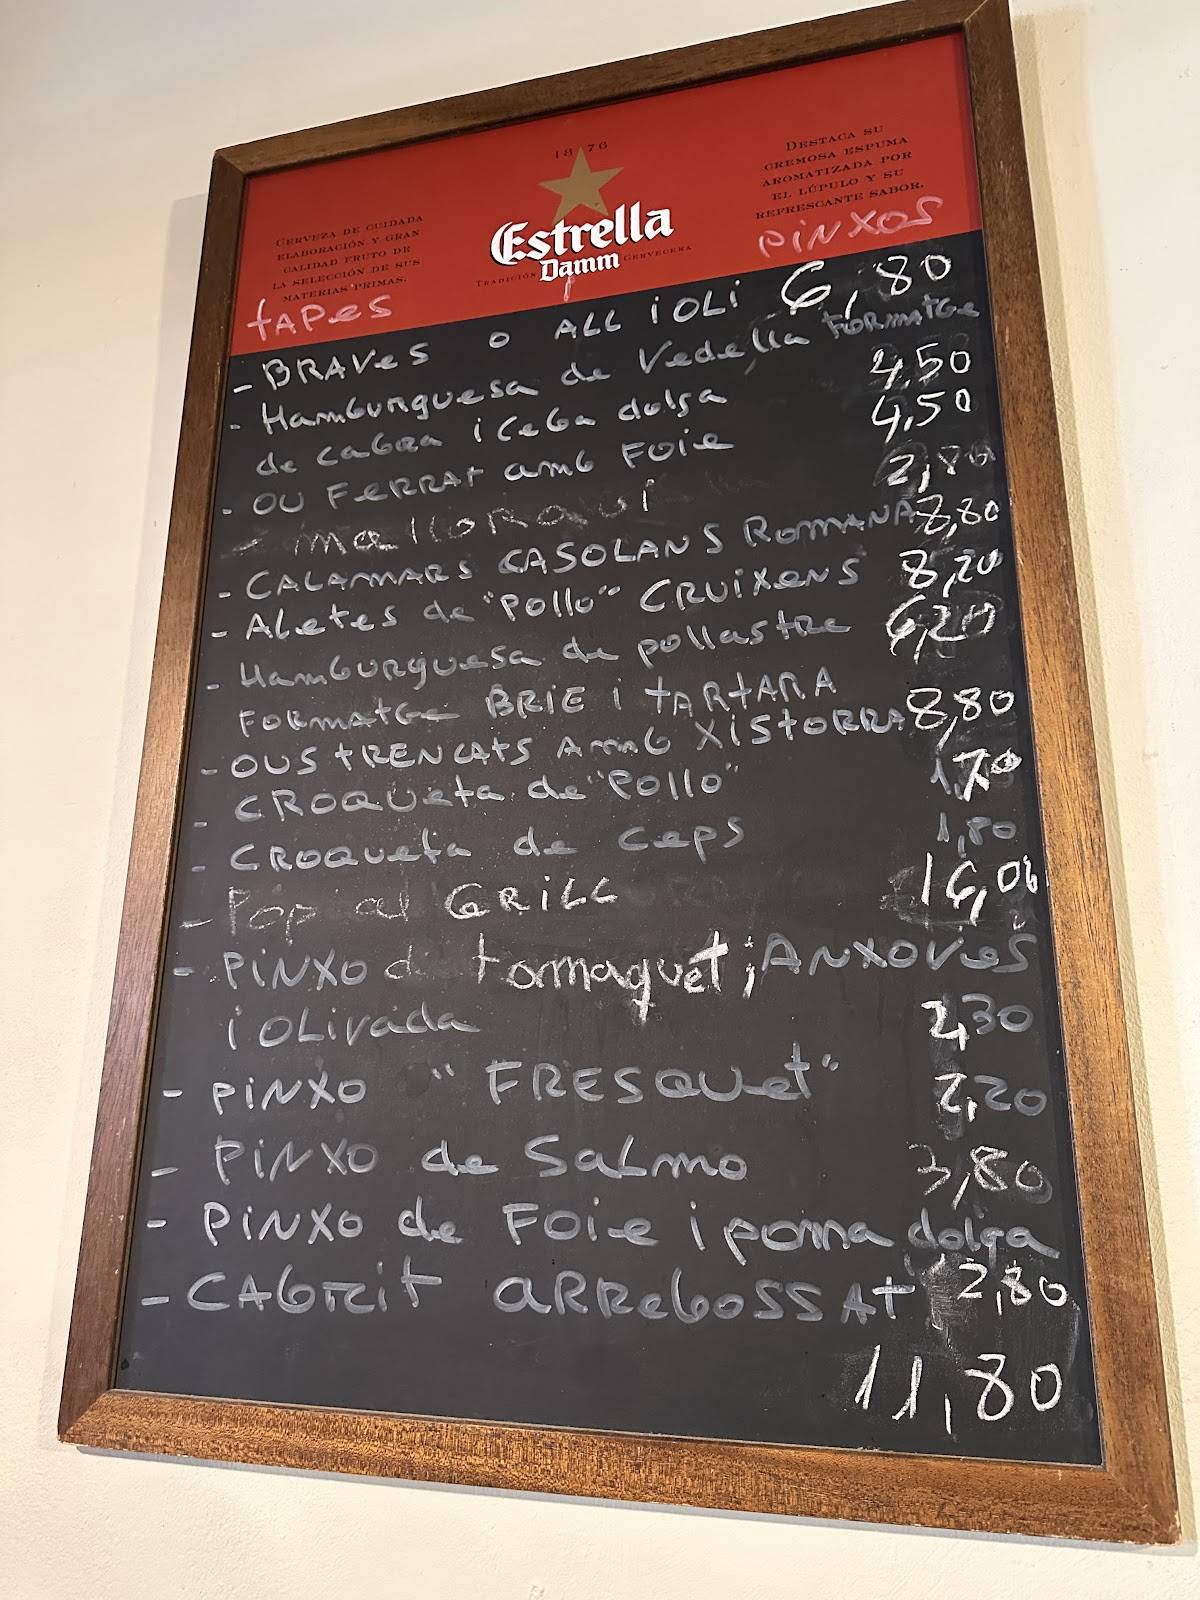 1876
CERVEZA DE CUIDADA
ELABORACIÓN Y GRAN
CALIDAD FRUTO DE
LA SELECCIÓN DE SUS
MATERIAS PRIMAS.
Estrella
Damm
TRADICIÓN CERVECERA
DESTACA SU
CREMOSA ESPUMA
AROMATIZADA POR
EL LÚPULO Y SU
REFRESCANTE SABOR.
tAPES
PINXOS
- BRAVES O ALL I OLI 6,80
- Hamburguesa de Vedella FORMATGE
de cabra i Ceba dolça 4,50
- OU FERRAT amb FOIE 4,50
- mallorquí 2,80
- CALAMARS CASOLANS ROMANA 8,80
- Aletes de "Pollo" CRUIXENS 8,20
- Hamburguesa de pollastre 6,20
FORMATGE BRIE I TARTARA
- OUS TRENCATS AMB XISTORRA 8,80
- CROQUETA de "Pollo" 1,70
- CROQUETA de CEPS 1,80
- POP al GRILL 16,00
- PINXO de tomaquet, ANXOVES
i OLIVADA 2,30
- PINXO "FRESQUET" 2,20
- PINXO de SALMO 3,80
- PINXO de FOIE i poma dolça
2,80
- CABRIT ARREBOSSAT
11,80